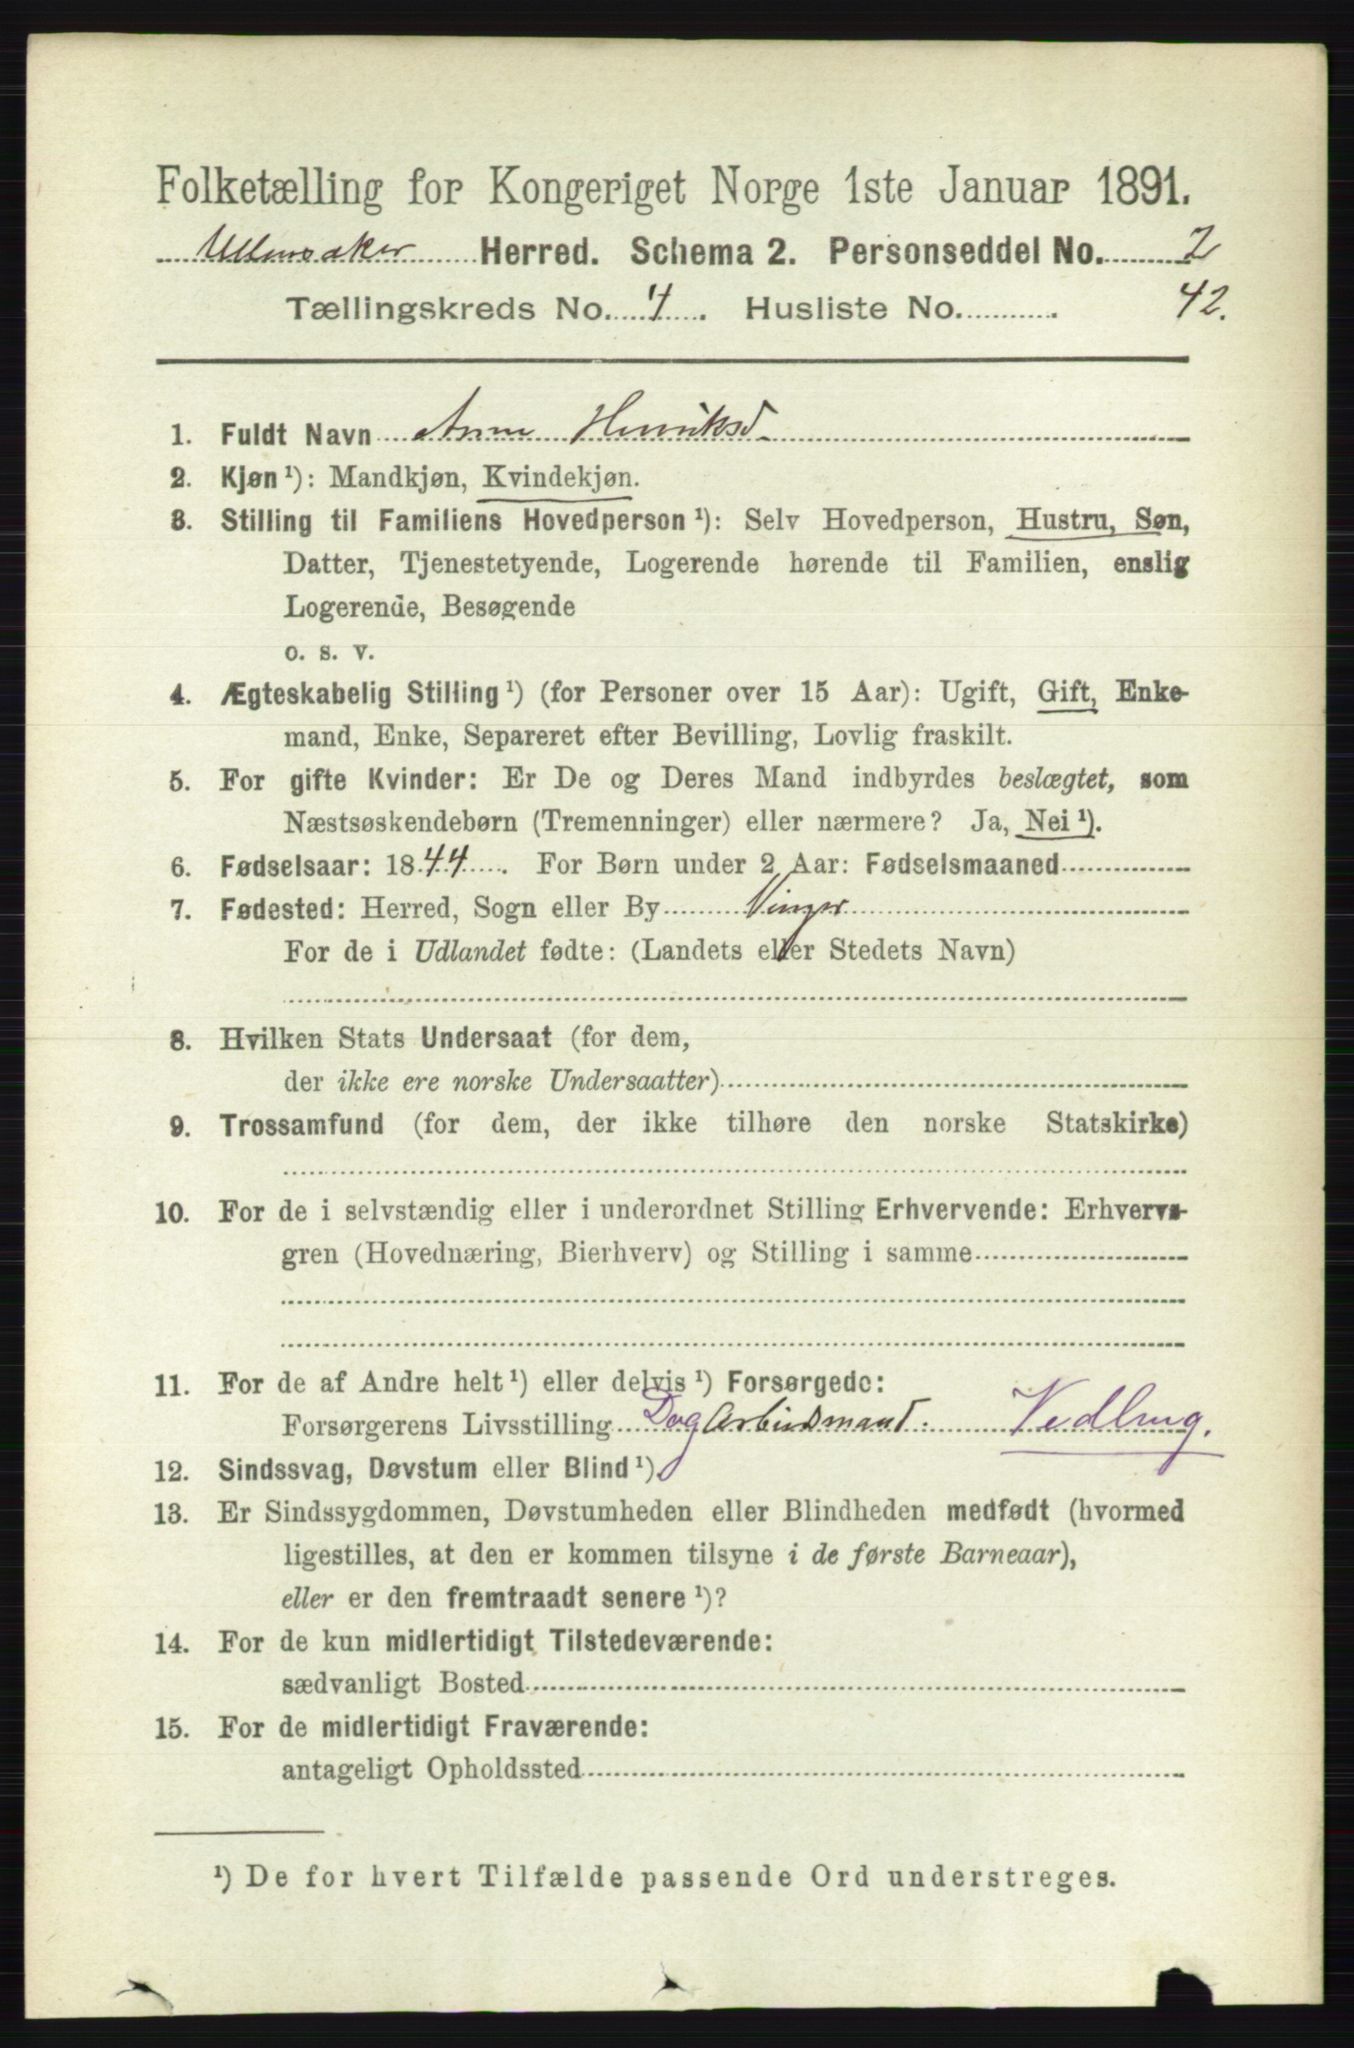 Folketælling for Kongeriget Norge 1ste Januar 1891.
Ullensaker Herred. Schema 2. Personseddel No. 2
Tællingskreds No. 4. Husliste No. 42.
1. Fuldt Navn Anne Henriksd
2. Kjøn ¹): Mandkjøn, Kvindekjøn.
3. Stilling til Familiens Hovedperson ¹): Selv Hovedperson, Hustru, Søn,
Datter, Tjenestetyende, Logerende hørende til Familien, enslig
Logerende, Besøgende
o. s. v.
4. Ægteskabelig Stilling ¹) (for Personer over 15 Aar): Ugift, Gift, Enke-
mand, Enke, Separeret efter Bevilling, Lovlig fraskilt.
5. For gifte Kvinder: Er De og Deres Mand indbyrdes beslægtet, som
Næstsøskendebørn (Tremenninger) eller nærmere? Ja, Nei ¹).
6. Fødselsaar: 1844. For Børn under 2 Aar: Fødselsmaaned
7. Fødested: Herred, Sogn eller By Vinger
For de i Udlandet fødte: (Landets eller Stedets Navn)
8. Hvilken Stats Undersaat (for dem,
der ikke ere norske Undersaatter)
9. Trossamfund (for dem, der ikke tilhøre den norske Statskirke)
10. For de i selvstændig eller i underordnet Stilling Erhvervende: Erhvervs-
gren (Hovednæring, Bierhverv) og Stilling i samme
11. For de af Andre helt ¹) eller delvis ¹) Forsørgede:
Forsørgerens Livsstilling Dagarbeidsmand. Vedhug.
12. Sindssvag, Døvstum eller Blind ¹).
13. Er Sindssygdommen, Døvstumheden eller Blindheden medfødt (hvormed
ligestilles, at den er kommen tilsyne i de første Barneaar),
eller er den fremtraadt senere ¹)?
14. For de kun midlertidigt Tilstedeværende:
sædvanligt Bosted
15. For de midlertidigt Fraværende:
antageligt Opholdssted
¹) De for hvert Tilfælde passende Ord understreges.